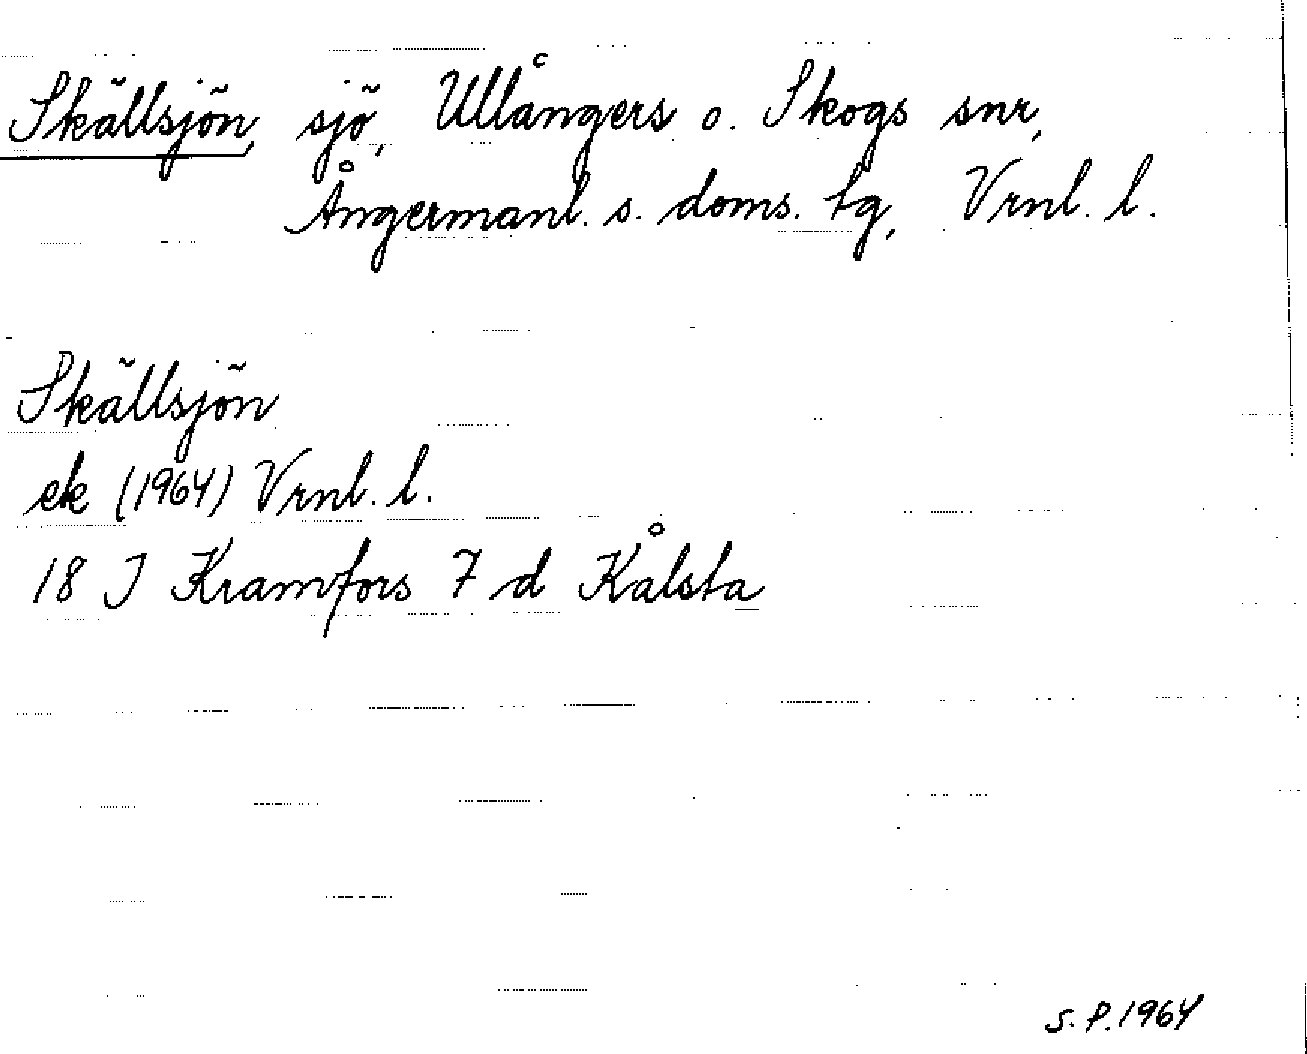 Skällsjön, sjö, Ullångers o. Skogs snr,
Ångermanl. s. doms. tg, Vrnl. l.
Skällsjön
ek (1964) Vrnl. l.
18 J Kramfors 7 d Kålsta
S. P. 1964